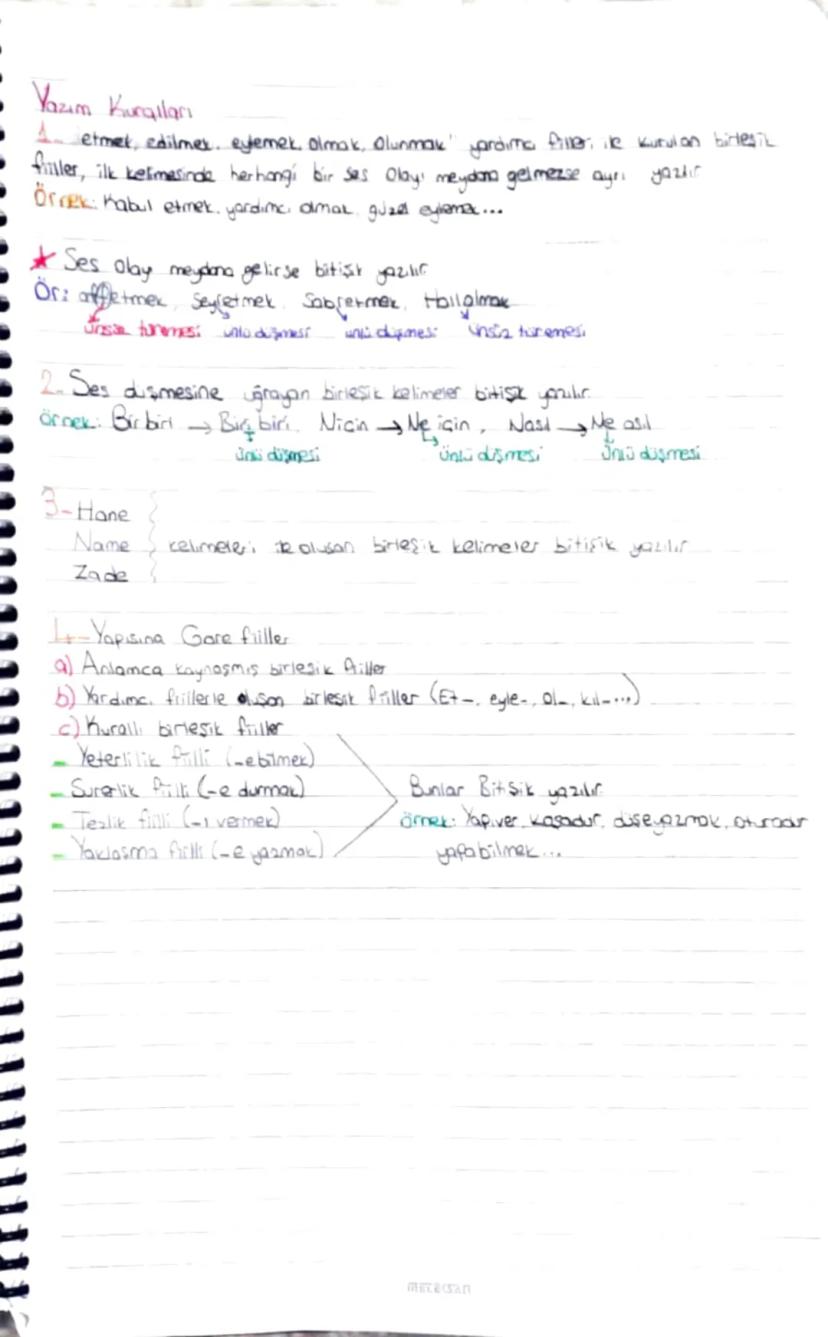 Yazım Kuralları
1- etmek, edilmek, eylemek, olmak, olunmak" yardımcı fiiller, ile kurulan birleşik
fiiller, ilk kelimesinde herhangi bir ses olayı meydana gelmezse ayrı yazılır
Örnek: Kabul etmek, yardımcı olmak, güzel eylemek...
★ Ses olay meydana gelirse bitişik yazılır
Ör: affetmek, Seyretmek, Sabretmek, Hallolmak
ünsüz türemesi ünlü düşmesi ünlü düşmesi ünsüz türemesi
2- Ses düşmesine uğrayan birleşik kelimeler bitişik yazılır
örnek: Birbiri → Biri biri, Niçin → Ne için, Nasıl → Ne asıl
ünlü düşmesi ünlü düşmesi ünlü düşmesi
3- Hane
Name kelimeleri ile oluşan birleşik kelimeler bitişik yazılır
Zade
4- Yapısına Göre fiiller
a) Anlamca kaynaşmış birleşik fiiller
b) Yardımcı fiillerle oluşan birleşik fiiller (Et-, eyle-, ol-, kıl-...)
c) Kurallı birleşik fiiller
- Yeterlilik fiili (-ebilmek)
- Sürerlik fiili (-e durmak) Bunlar Bitişik yazılır
- Tezlik fiili (-ı vermek) örnek: Yapıver, koşadur, düşeyazmak, oturadur
- Yaklaşma fiili (-e yazmak) yapabilmek...